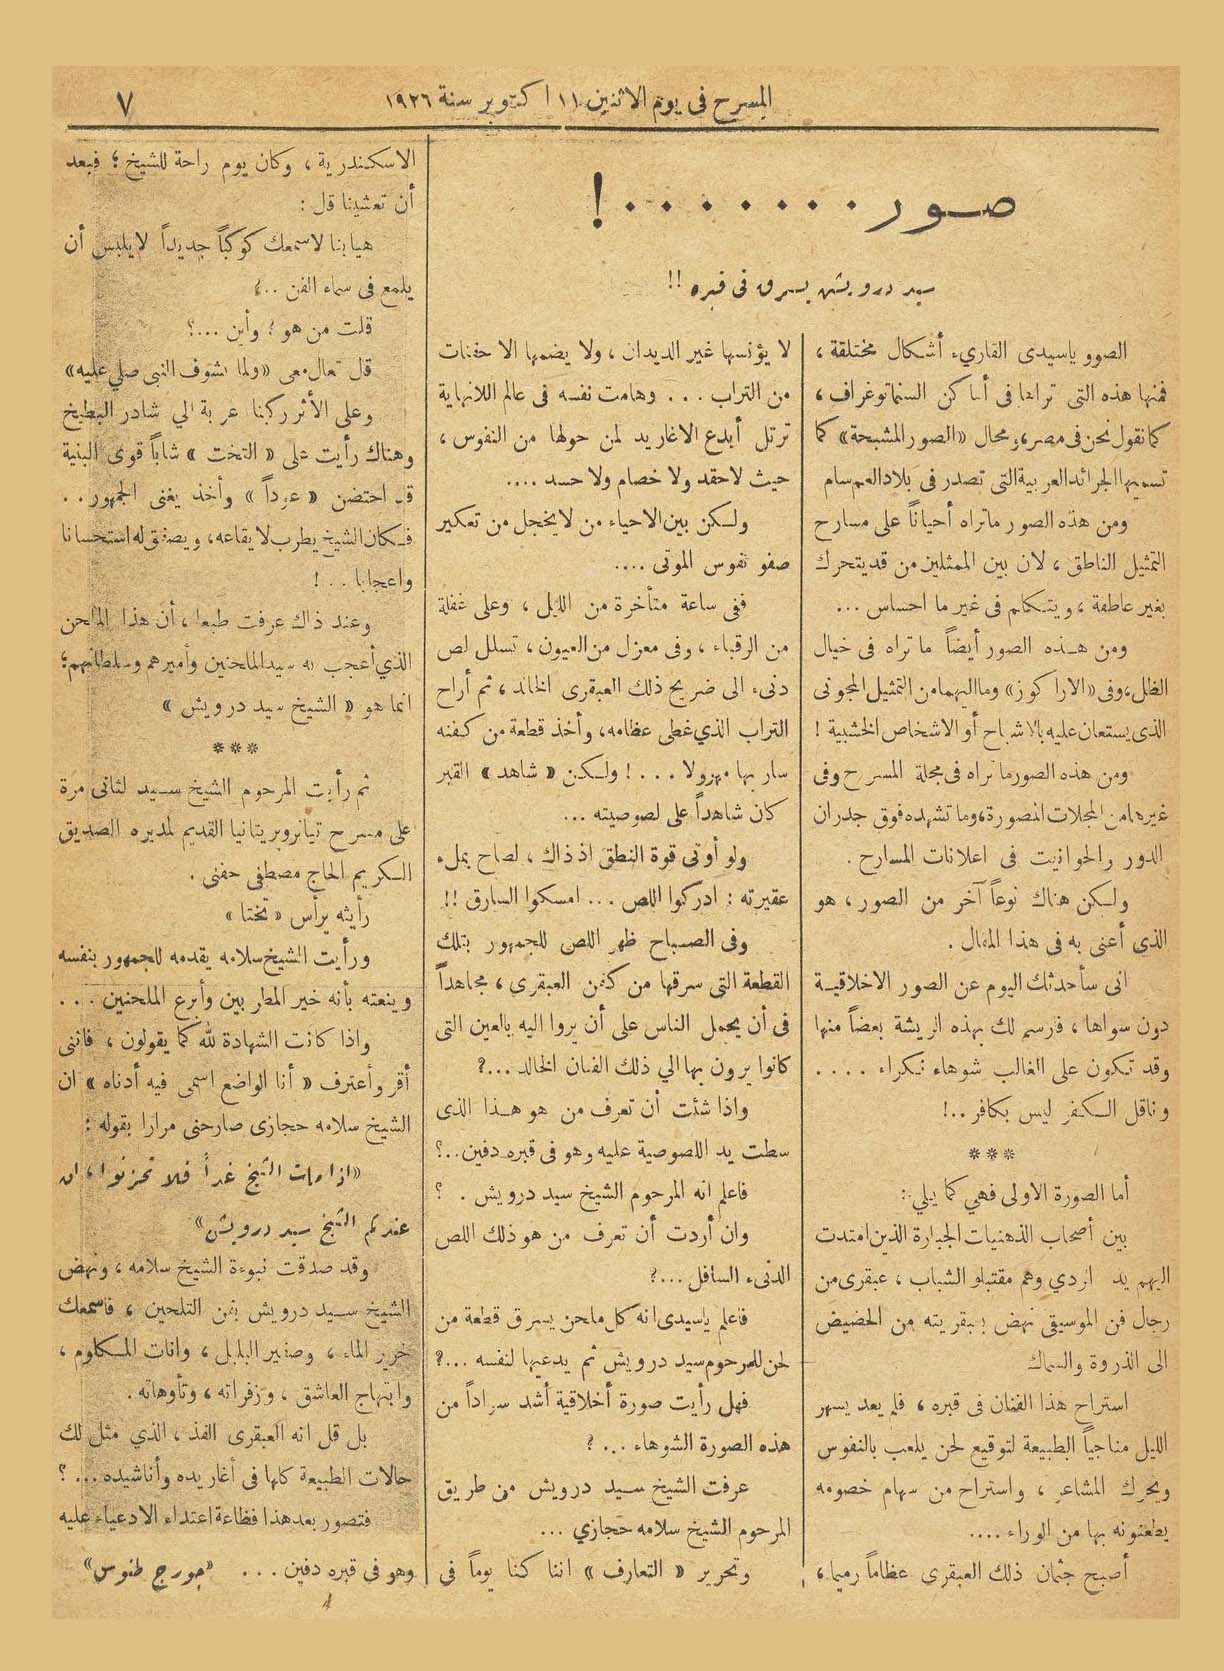 المسرح فى يوم الاثنين ١١ اكتوبر سنة ١٩٢٦
٧
صور . . . . . . . !
سيد درويش يسرق فى قبره !!
الصوو ياسيدى القاريء أشكال مختلفة ،
فمنها هذه التى تراها فى أماكن السنماتوغراف ،
كما نقول نحن فى مصر ، ومحال «الصور المشبحة» كما
تسميها الجرائد العربية التى تصدر فى بلاد العم سام
ومن هذه الصور ماتراه أحياناً على مسارح
التمثيل الناطق ، لان بين الممثلين من قد يتحرك
بغير عاطفة ، ويتكلم فى غير ما احساس ...
ومن هذه الصور أيضاً ما تراه فى خيال
الظل ، وفى «الاراكوز» وما اليهما من التمثيل المجونى
الذى يستعان عليه بالاشباح أو الاشخاص الخشبية !
ومن هذه الصور ماتراه فى مجلة المسرح وفى
غيرها من المجلات المصورة ، وما تشهده فوق جدران
الدور والحوانيت فى اعلانات المسارح .
ولكن هناك نوعاً آخر من الصور ، هو
الذى أعنى به فى هذا المقال .
انى سأحدثك اليوم عن الصور الاخلاقية
دون سواها ، فترسم لك بهذه الريشة بعضاً منها
وقد تكون على الغالب شوهاء نكراء ....
وناقل الكفر ليس بكافر ..!
***
أما الصورة الاولى فهي كما يلي :
بين أصحاب الذهنيات الجبارة الذين امتدت
اليهم يد الردي وهم مقتبلو الشباب ، عبقرى من
رجال فن الموسيقى نهض بعبقريته من الحضيض
الى الذروة والسماك
استراح هذا الفنان فى قبره ، فلم يعد يسهر
الليل مناجياً الطبيعة لتوقيع لحن يلعب بالنفوس
ويحرك المشاعر ، واستراح من سهام خصومه
يطعنونه بها من الوراء ....
أصبح جثمان ذلك العبقرى عظاماً رميما ،
لا يؤنسها غير الديدان ، ولا يضمها الا حفنات
من التراب ... وهامت نفسه فى عالم اللانهاية
ترتل أبدع الاغاريد لمن حولها من النفوس ،
حيث لا حقد ولا خصام ولا حسد ....
ولكن بين الاحياء من لا يخجل من تعكير
صفو نفوس الموتى ....
ففى ساعة متأخرة من الليل ، وعلى غفلة
من الرقباء ، وفى معزل من العيون ، تسلل لص
دنىء الى ضريح ذلك العبقرى الخالد ، ثم أراح
التراب الذي غطى عظامه ، وأخذ قطعة من كفنه
سار بها مهرولا ... ! ولكن «شاهد» القبر
كان شاهداً على لصوصيته ...
ولو أوتى قوة النطق اذ ذاك ، لصاح بملء
عقيرته : ادركوا اللص ... امسكوا السارق !!
وفى الصباح ظهر اللص للجمهور بتلك
القطعة التى سرقها من كفن العبقرى ، مجاهداً
فى أن يحمل الناس على أن يروا اليه بالعين التى
كانوا يرون بها الي ذلك الفنان الخالد ...؟
واذا شئت أن تعرف من هو هذا الذى
سطت يد اللصوصية عليه وهو فى قبره دفين ..؟
فاعلم انه المرحوم الشيخ سيد درويش . ؟
وان أردت أن تعرف من هو ذلك اللص
الدنىء السافل ...؟
فاعلم ياسيدى انه كل ملحن يسرق قطعة من
لحن للمرحوم سيد درويش ثم يدعيها لنفسه ...؟
فهل رأيت صورة أخلاقية أشد سواداً من
هذه الصورة الشوهاء ... ؟
عرفت الشيخ سيد درويش من طريق
المرحوم الشيخ سلامه حجازي ...
وتحرير «التعارف» اننا كنا يوماً فى
الاسكندرية ، وكان يوم راحة للشيخ ؛ فبعد
أن تعشينا قل :
هيا بنا لاسمعك كوكباً جديداً لا يلبس أن
يلمع فى سماء الفن ..؟
قلت من هو ؟ وأين ...؟
قل تعال معى «ولما تشوف النبى صلي عليه»
وعلى الأثر ركبنا عربة الي شادر البطيخ
وهناك رأيت على «التخت» شاباً قوى البنية
قد احتضن «عوداً» وأخذ يغنى الجمهور ..
فكان الشيخ يطرب لايقاعه ، ويصفق له استحسانا
واعجابا .. !
وعند ذاك عرفت طبعا ، أن هذا الملحن
الذي أعجب به سيد الملحنين وأميرهم وسلطانهم ؛
انما هو «الشيخ سيد درويش»
***
ثم رأيت المرحوم الشيخ سيد لثانى مرة
على مسرح تياترو بريتانيا القديم لمديره الصديق
الكريم الحاج مصطفى حفنى .
رأيته يرأس «تختا»
ورأيت الشيخ سلامه يقدمه للجمهور بنفسه
وينعته بأنه خير المطربين وأبرع الملحنين ...
واذا كانت الشهادة لله كما يقولون ، فاننى
أقر وأعترف «أنا الواضع اسمى فيه أدناه» ان
الشيخ سلامه حجازى صارحنى مرارا بقوله :
«اذا مات الشيخ غداً فلا تحزنوا ، ان
عندكم الشيخ سيد درويش»
وقد صدقت نبوءة الشيخ سلامه ، ونهض
الشيخ سيد درويش بفن التلحين ، فاسمعك
خرير الماء ، وصفير البلبل ، وانات المكلوم ،
وابتهاج العاشق ، وزفراته ، وتأوهاته .
بل قل انه العبقرى الفذ ، الذي مثل لك
حالات الطبيعة كلها فى أغاريده وأناشيده ... ؟
فتصور بعد هذا فظاعة اعتداء الادعياء عليه
وهو فى قبره دفين ... «جورج طنوس»